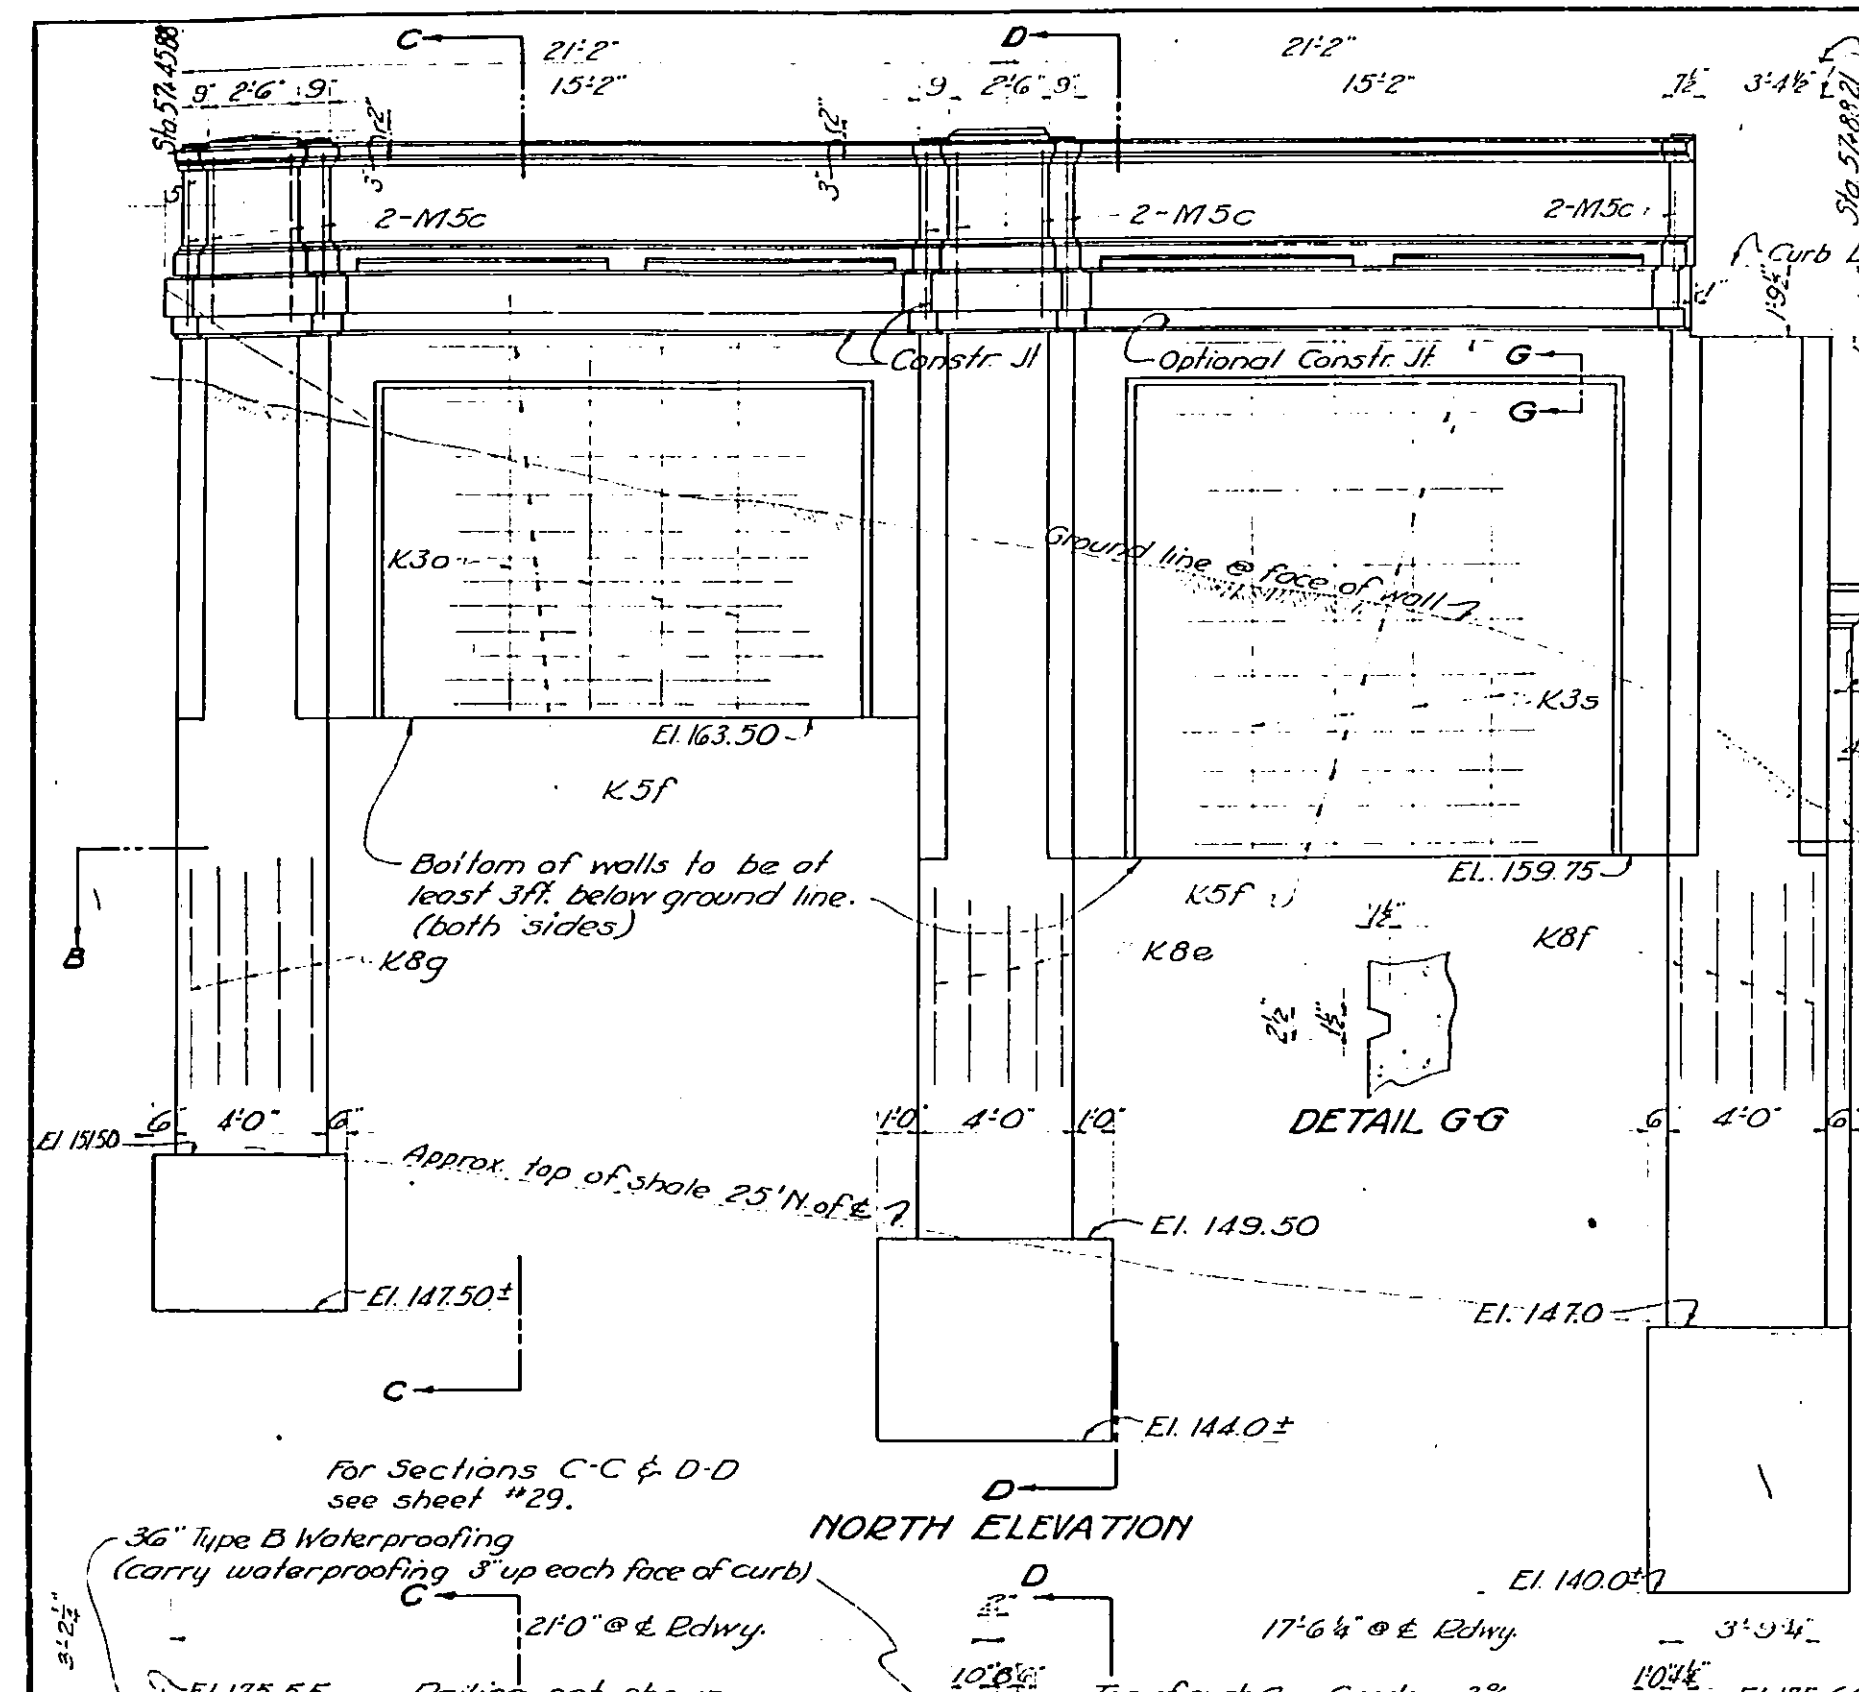 C
21'-2"
D
21'-2"
9" 2'-6" 9"
15'-2"
9 2'-6" 9"
15'-2"
7½" 3'-4½"
3" 2"
3" 2"
2-M5c
2-M5c
2-M5c
Curb
1'-9¼"
Constr. Jt
Optional Constr. Jt.
G
G
K3o
Ground line @ face of wall
K3s
El. 163.50
K5f
Bottom of walls to be at
least 3ft. below ground line.
(both sides)
El. 159.75
K5f
B
K8g
K8e
K8f
2½"
1½"
1½"
DETAIL G-G
6" 4'-0" 6"
1'-0" 4'-0" 1'-0"
6" 4'-0" 6"
El. 151.50
Approx. top of shale 25' N. of ℄
El. 149.50
El. 147.50±
El. 147.0
C
El. 144.0±
For Sections C-C & D-D
see sheet #29.
D
NORTH ELEVATION
36" Type B Waterproofing
(carry waterproofing 3" up each face of curb)
El. 140.0±
C
D
3'-2¼"
21'-0" @ ℄ Rdwy.
17'-6¼" @ ℄ Rdwy.
3'-9¼"